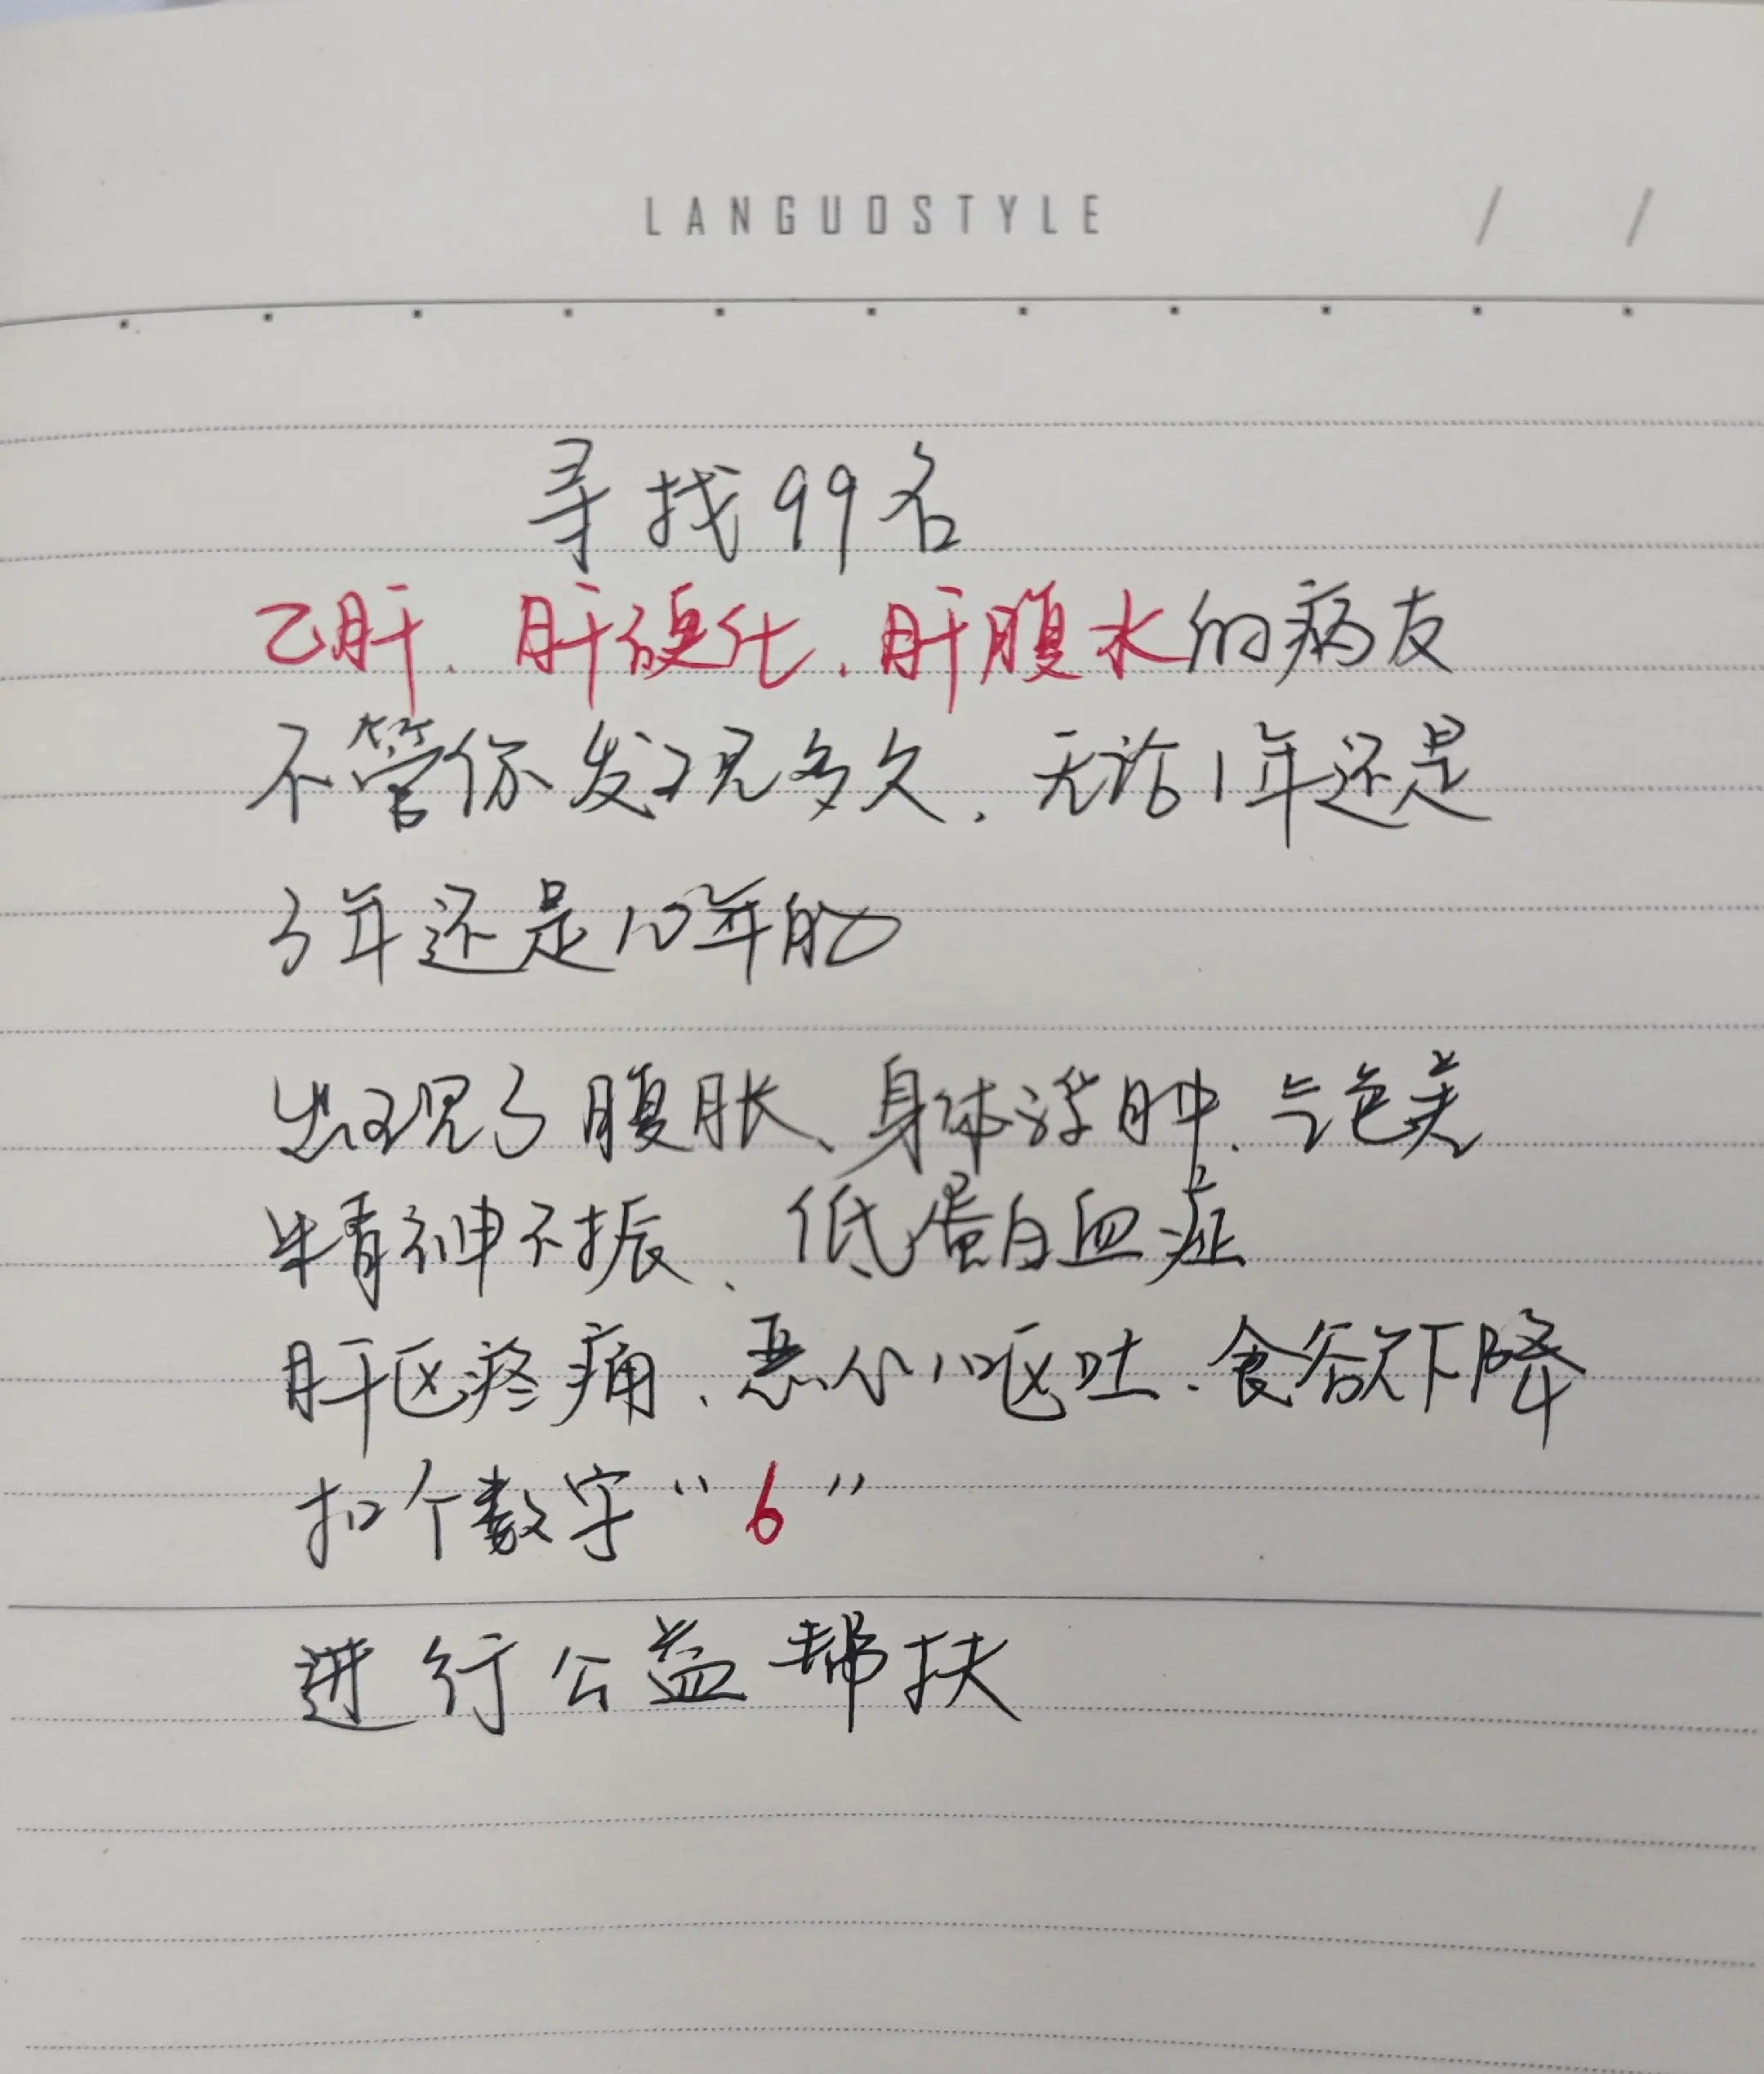 LANGUOSTYLE / /
寻找99名
乙肝、肝硬化、肝腹水的病友
不管你发现多久,无论1年还是
3年还是10年的
出现了腹胀、身体浮肿、气色差
精神不振、低蛋白血症
肝区疼痛、恶心呕吐、食欲下降
扣个数字“6”
进行公益帮扶